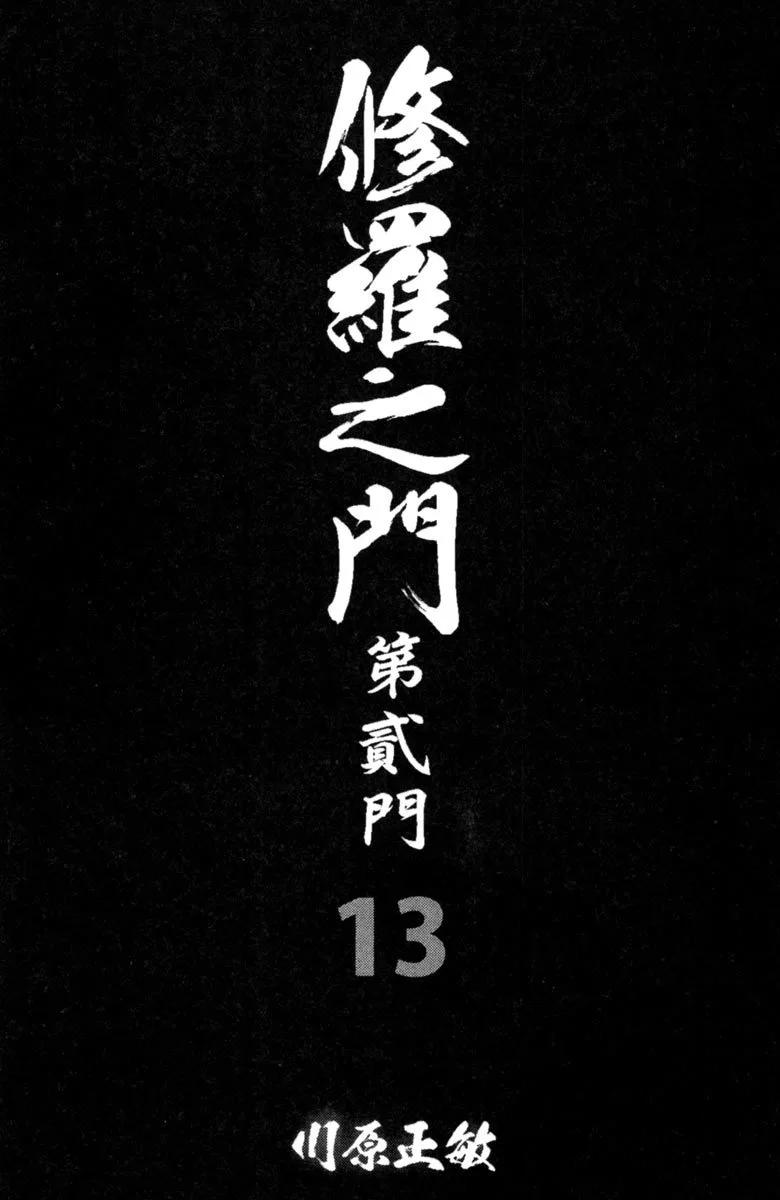 修羅之門
第貳門
13
川原正敏